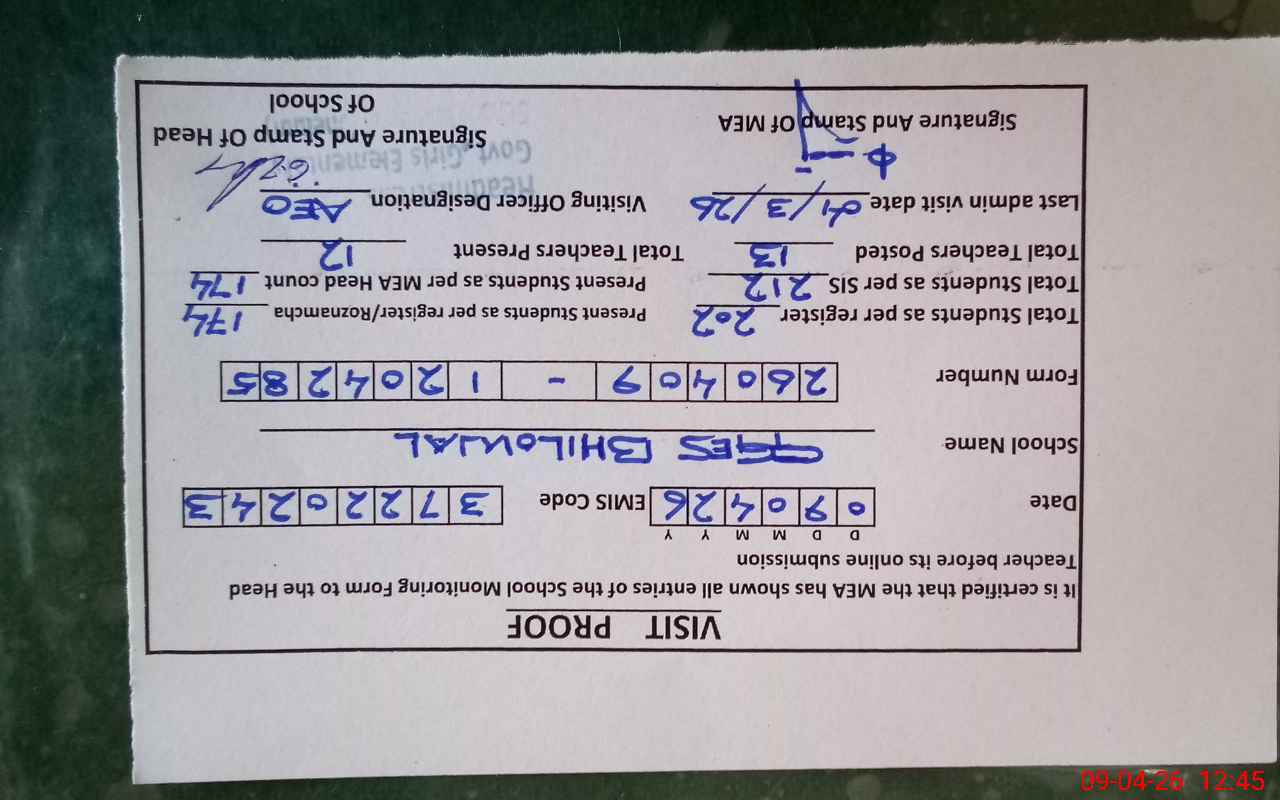 VISIT PROOF
It is certified that the MEA has shown all entries of the School Monitoring Form to the Head
Teacher before its online submission
D D M M Y Y
Date 0 9 0 4 2 6 EMIS Code 3 7 2 2 0 2 4 3
School Name GGES BHILOWAL
Form Number 2 6 0 4 0 9 - 1 2 0 4 2 8 5
Total Students as per register 202 Present Students as per register/Roznamcha 174
Total Students as per SIS 212 Present Students as per MEA Head count 174
Total Teachers Posted 13 Total Teachers Present 12
Last admin visit date /3/26 Visiting Officer Designation AEO
Headmistress
Govt. Girls Element
Signature And Stamp Of MEA Signature And Stamp Of Head
Of School
09-04-26 12:45